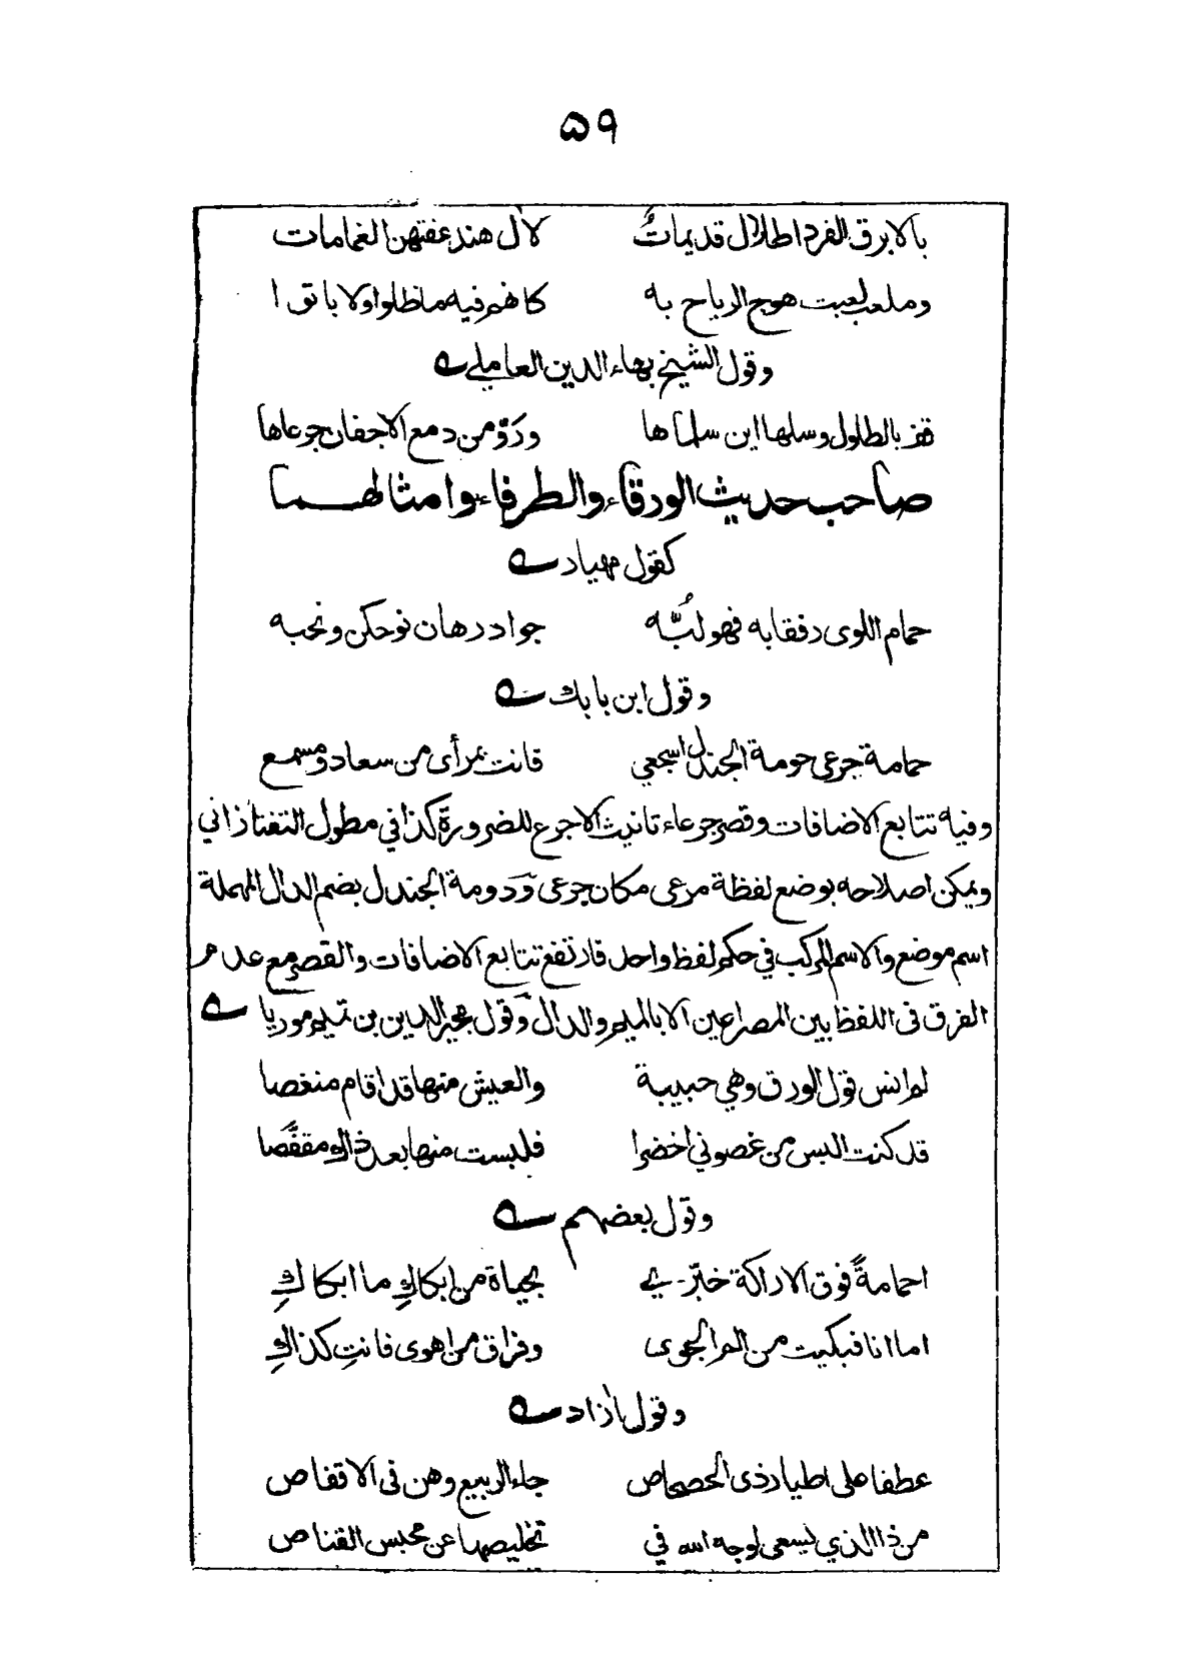 ۵۹
بالابرق الفرد اطلال قديماتُ لآل هند عفتهن الغمامات
وملعب لعبت هوج الرياح به كانهم فيه ما ظلوا ولا باتوا
وقول الشيخ بهاء الدين العاملي
قف بالطلول وسلها اين سلماها وروّ من دمع الاجفان جرعاها
صاحب حديث الورقاء والطرفاء وامثالهما
كقول مهيار
حمام اللوى رفقا به فهو لُبُّه جواد رهان نوحكن ونحبه
وقول ابن بابك
حمامة جرعى حومة الجندل اسجعي فانت بمرأى من سعاد ومسمع
وفيه تتابع الاضافات وقصر جرعاء تانيث الاجرع للضرورة كذا في مطول التفتازاني
ويمكن اصلاحه بوضع لفظة مرعى مكان جرعى وَدومة الجندل بضم الدال المهملة
اسم موضع والاسم المركب في حكم لفظ واحد فارتفع تتابع الاضافات والقصر مع عدم
الفرق فى اللفظ بين المصراعين الا بالميم والدال وَقول مجير الدين بن تميم موريا
لم انس قول الورق وهي حبيبة والعيش منها قد اقام منغصا
قد كنت البس من غصوني اخضرا فلبست منها بعد ذاك مقفَّصا
وقول بعضهم
احمامةً فوق الاراكة خبّري بحياة من ابكاكِ ما ابكاكِ
اما انا فبكيت من الم الجوى وفراق من اهوى فانتِ كذاكِ
وقول آزاد
عطفا على اطيار ذى الحصحاص جاء الربيع وهن فى الاقفاص
من ذا الذي يسعى لوجه الله في تخليصها عن محبس القناص